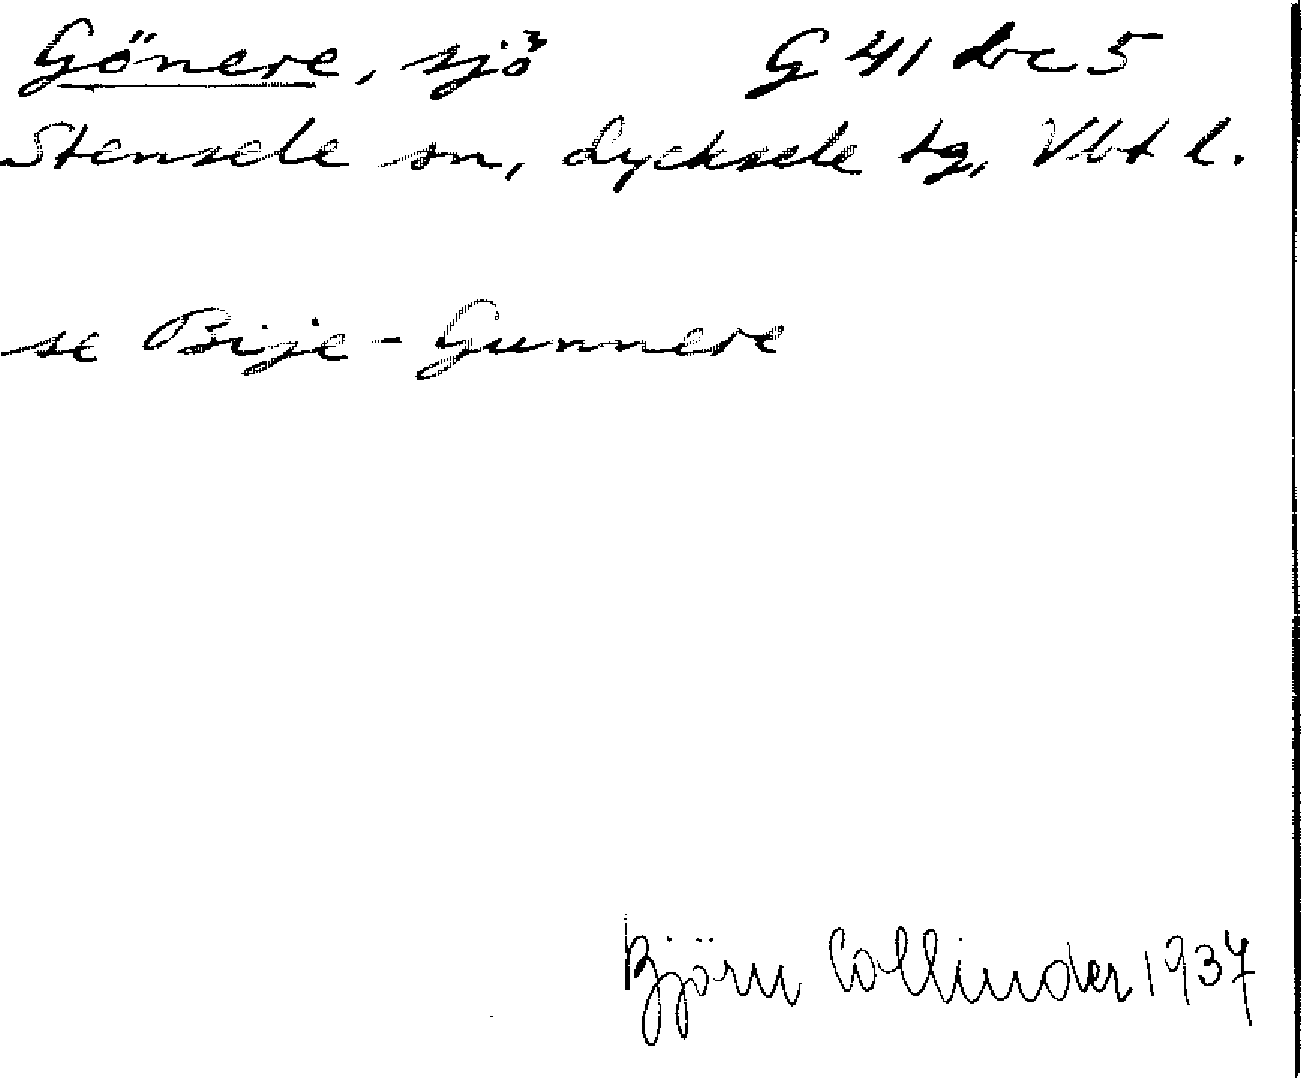 Gönere, sjö G 41 dvc 5
Stensele sn, Lycksele tg, Vbt l.
se Bije-Gunnere
Björn Collinder 1937